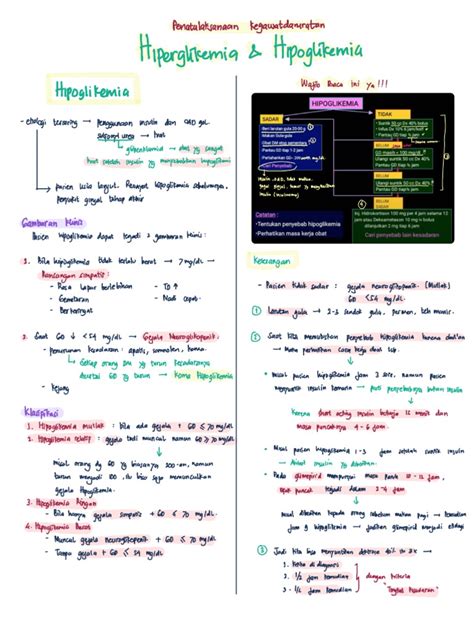 Penatalaksanaan Kegawatdaruratan
Hiperglikemia & Hipoglikemia
Hipoglikemia
- etiologi tersering → penggunaan insulin dan OAD gol.
sulfonil urea → obat
↳ glibenklamid → obat yg sangat
→ Pasien lupa
penyakit ginjal tahap akhir
Gambaran Klinis
Pasien hipoglikemia dapat terjadi 2 gambaran klinis:
1. Bila hipoglikemia tidak terlalu berat → 7 mg/dL →
Rangsangan simpatis:
- Rasa lapar berlebihan
- TD ↑
- Gemetaran
- Nadi cepat
- Berkeringat
2. Saat GD ↓ < 54 mg/dL → Gejala Neuroglikopenik.
- Penurunan kesadaran: apatis, somnolen, koma.
↳ Setiap orang DM yg turun kesadarannya
disertai GD yg turun → Koma Hipoglikemia
- Kejang
Klasifikasi
1. Hipoglikemia mutlak : bila ada gejala + GD ≤ 70 mg/dL
2. Hipoglikemia relatif : gejala tadi muncul namun GD ≥ 70 mg/dL
misal orang dg GD yg biasanya 300-an, namun
turun menjadi 100, itu bisa juga memunculkan
gejala hipoglikemia.
3. Hipoglikemia Ringan
- Bila hanya gejala simpatis + GD ≤ 70 mg/dL
4. Hipoglikemia Berat
- Muncul gejala neuroglikopenik + GD ≤ 70 mg/dL
- Tanpa gejala + GD ≤ 54 mg/dL
Wajib Baca Ini ya !!!
HIPOGLIKEMIA
SADAR
Beri larutan gula 20-30 g
Makan Gula-gula
Obat DM stop sementara
Pantau GD tiap ½ jam
Pertahankan GD~
Cari Penyebab
TIDAK
- Suntik 50 cc Dx 40% bolus
- Infus Dx 10% 6 jam/kolf
- Pantau GD tiap ½ jam
BELUM
GD masih < 100 mg/dL
Ulangi suntik Dx 40% 50 cc
Pantau GD tiap ½ jam
BELUM
Ulangi suntik 50 cc Dx 40%
Pantau GD tiap ½ jam
BELUM
Inj. Hidrokortison 100 mg per 4 jam selama 12
jam atau Deksametason 10 mg iv bolus
dilanjutkan 2 mg tiap 6 jam
Cari penyebab lain kesadaran
Catatan :
-Tentukan penyebab hipoglikemia
-Perhatikan masa kerja obat
Keterangan
- Pasien tidak sadar : gejala neuroglikopenik (Mutlak)
GD < 54 mg/dL
① Larutan gula → 2-3 sendok gula, permen, teh manis.
② Saat kita menentukan penyebab hipoglikemia karena obat²an
→ Maka perhatikan
- Misal pasien hipoglikemia jam 3 sore, namun pasien
menyuntik insulin tadi pagi → pasti penyebabnya bukan insulin
karena short acting insulin bekerja 15 menit dan
masa puncaknya 4-6 jam.
- Misal pasien hipoglikemia 1-3 jam setelah suntik insulin
→ Akibat insulin itu diberikan.
- Pada glimepirid mempunyai masa paruh 10-12 jam,
efek puncak terjadi dalam 2-4 jam
misal diberikan kepada orang sebelum makan pagi → kemudian
jam 9 hipoglikemia → jadikan glimepirid menjadi etiologi
③ Jadi kita bisa menyuntikkan dekstrose
1. Ketika di diagnosis
2. 1/2 jam kemudian
3. 1/2 jam kemudian
dengan kriteria
"Tingkat kesadaran"